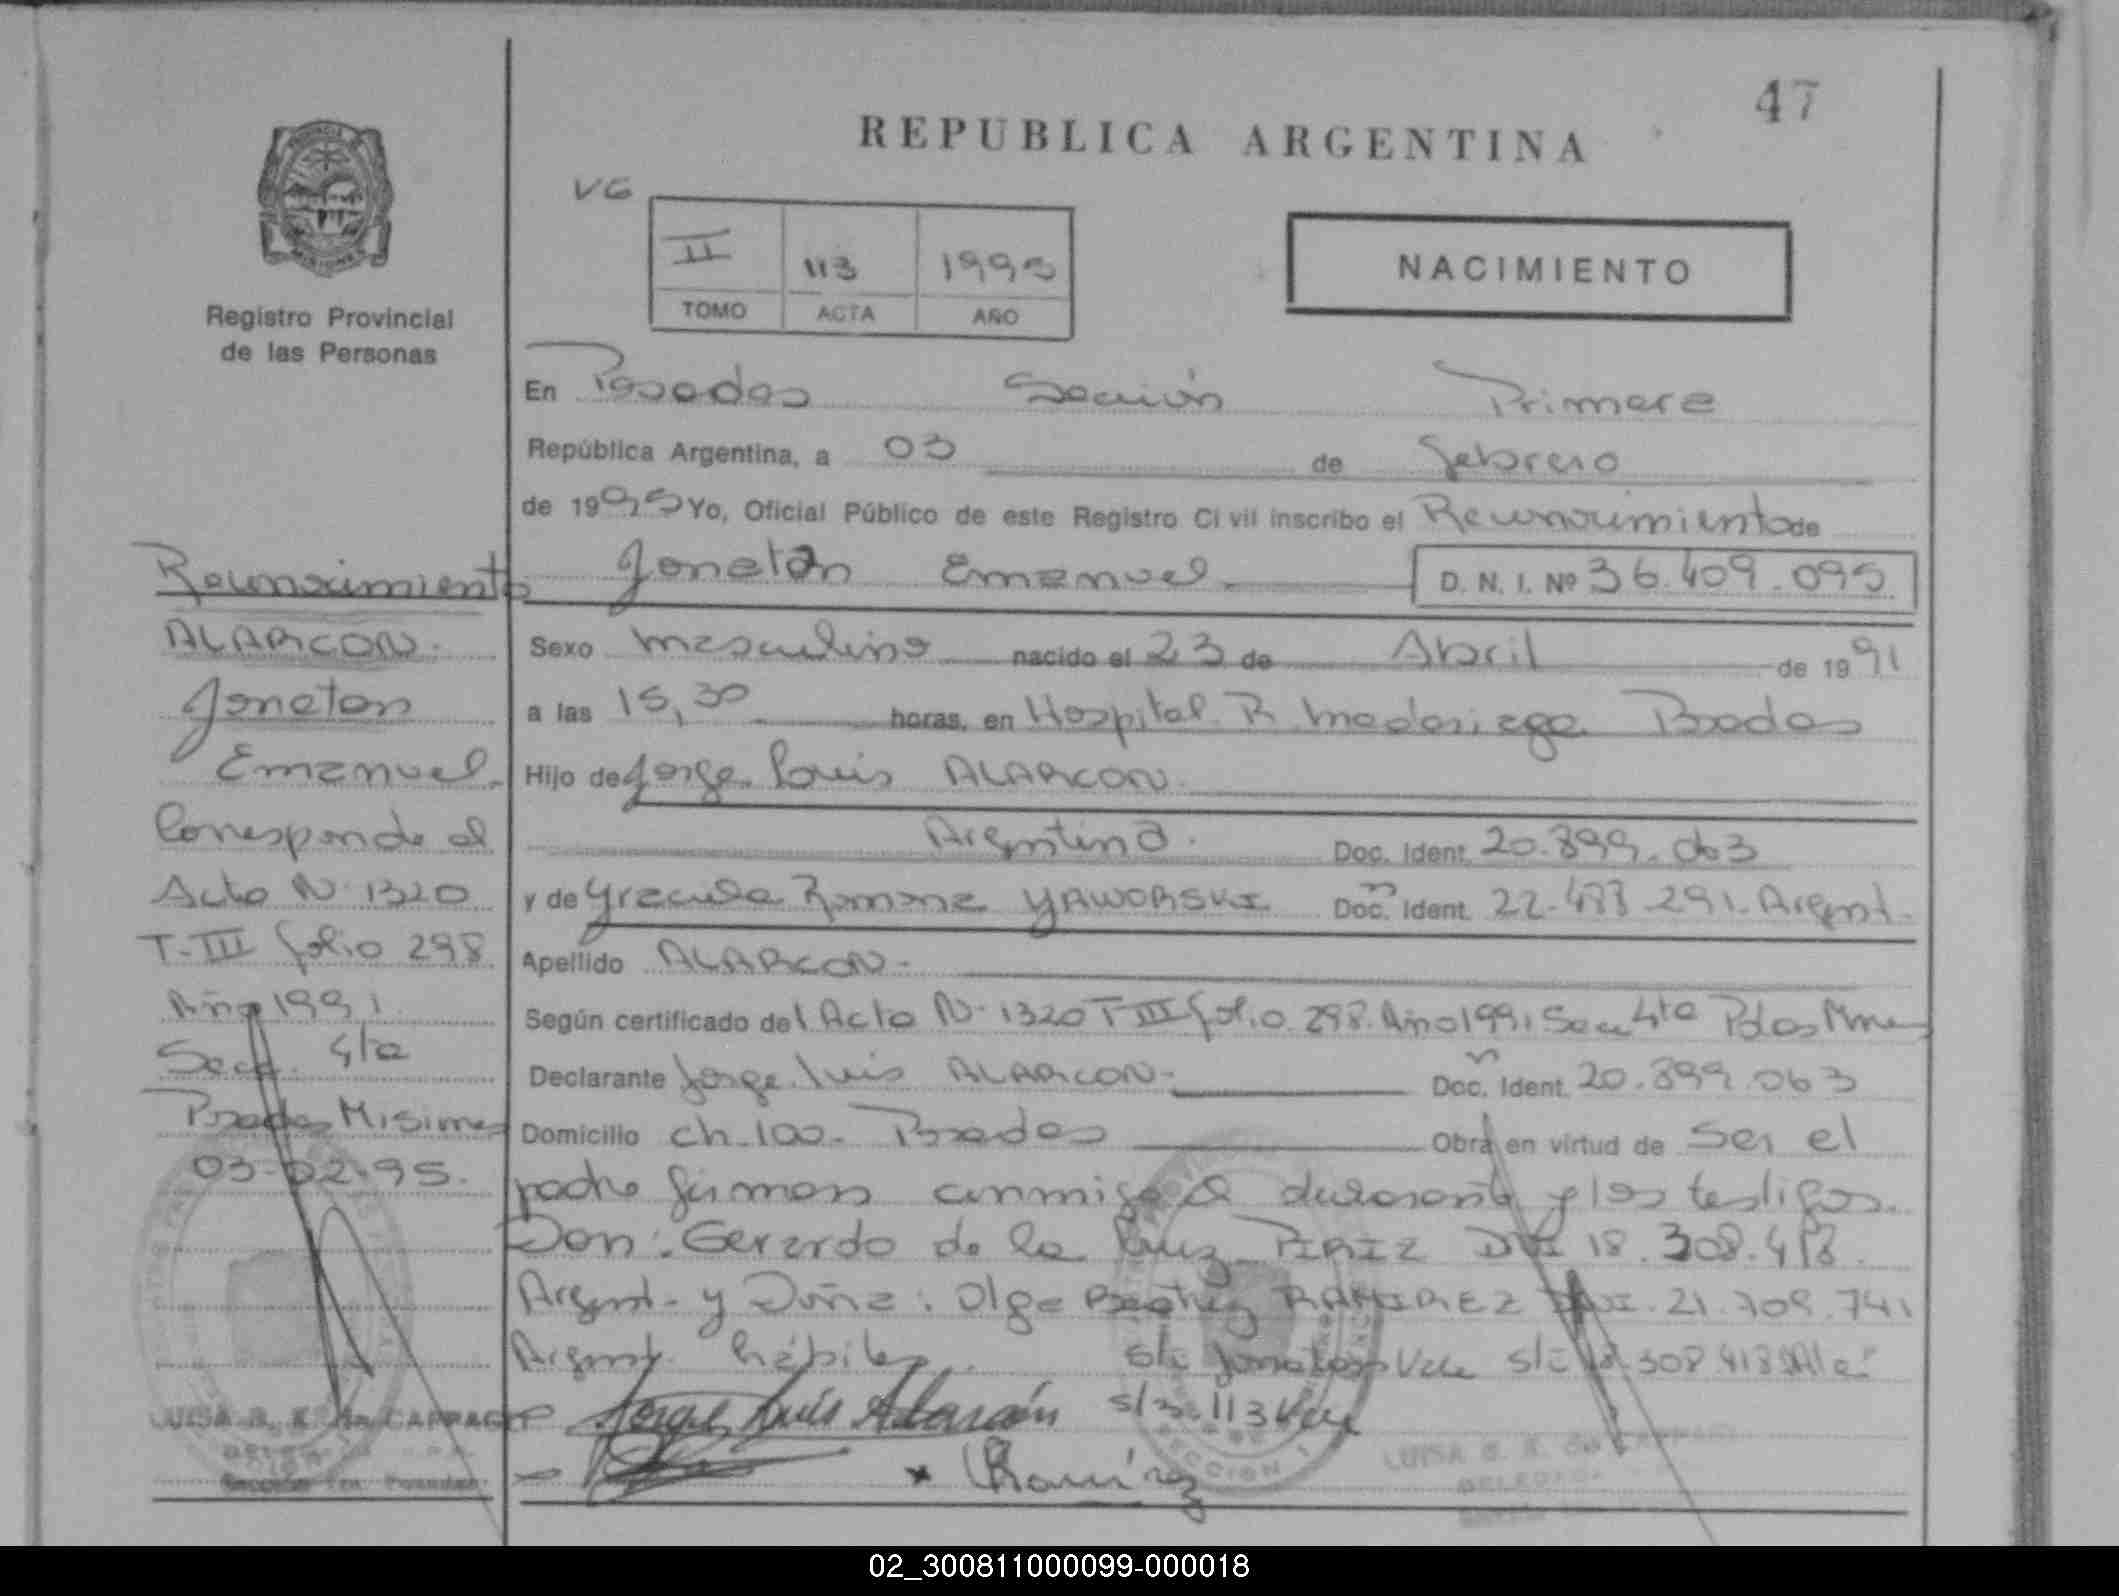 47
REPUBLICA ARGENTINA
VG
II 113 1995
TOMO ACTA AÑO
NACIMIENTO
Registro Provincial
de las Personas
En Posadas Sección Primera
República Argentina, a 03 de febrero
de 1995 Yo, Oficial Público de este Registro Civil inscribo el Reconocimiento de
Jonatan Emanuel D. N. I. Nº 36.409.095
Sexo masculino nacido el 23 de Abril de 1991
a las 15,30 horas, en Hospital R. Madariaga Posadas
Hijo de Jorge Luis ALARCON
Argentino. Doc. Ident. 20.899.063
y de Graciela Ramona YAWORSKI Doc. Ident. 22.483.291. Argent.
Apellido ALARCON.
Según certificado del Acta N. 1320 T III folio 298. Año 1991 Secc 4ta Pdas Mnes
Declarante Jorge Luis ALARCON. Doc. Ident. 20.899.063
Domicilio Ch. 100. Posadas Obra en virtud de Ser el
padre firman conmigo el declarante y los testigos.
Don: Gerardo de la Cruz PIRIZ DNI 18.308.418.
Argent. y Doña: Olga Beatriz RAMIREZ DNI. 21.709.741
Argent. hábiles. s/c Jonatan Vale s/c 18.308.418 Vale
Jorge Luis Alarcón s/r. 113 Vale
Ramírez
Reconocimiento
ALARCON.
Jonatan
Emanuel.
Corresponde al
Acta N. 1320
T. III folio 298
Año 1991.
Secc. 4ta
Posadas Misiones
03-02-95.
LUISA
SECCION 1
LUISA
DELEGADA
02_300811000099-000018